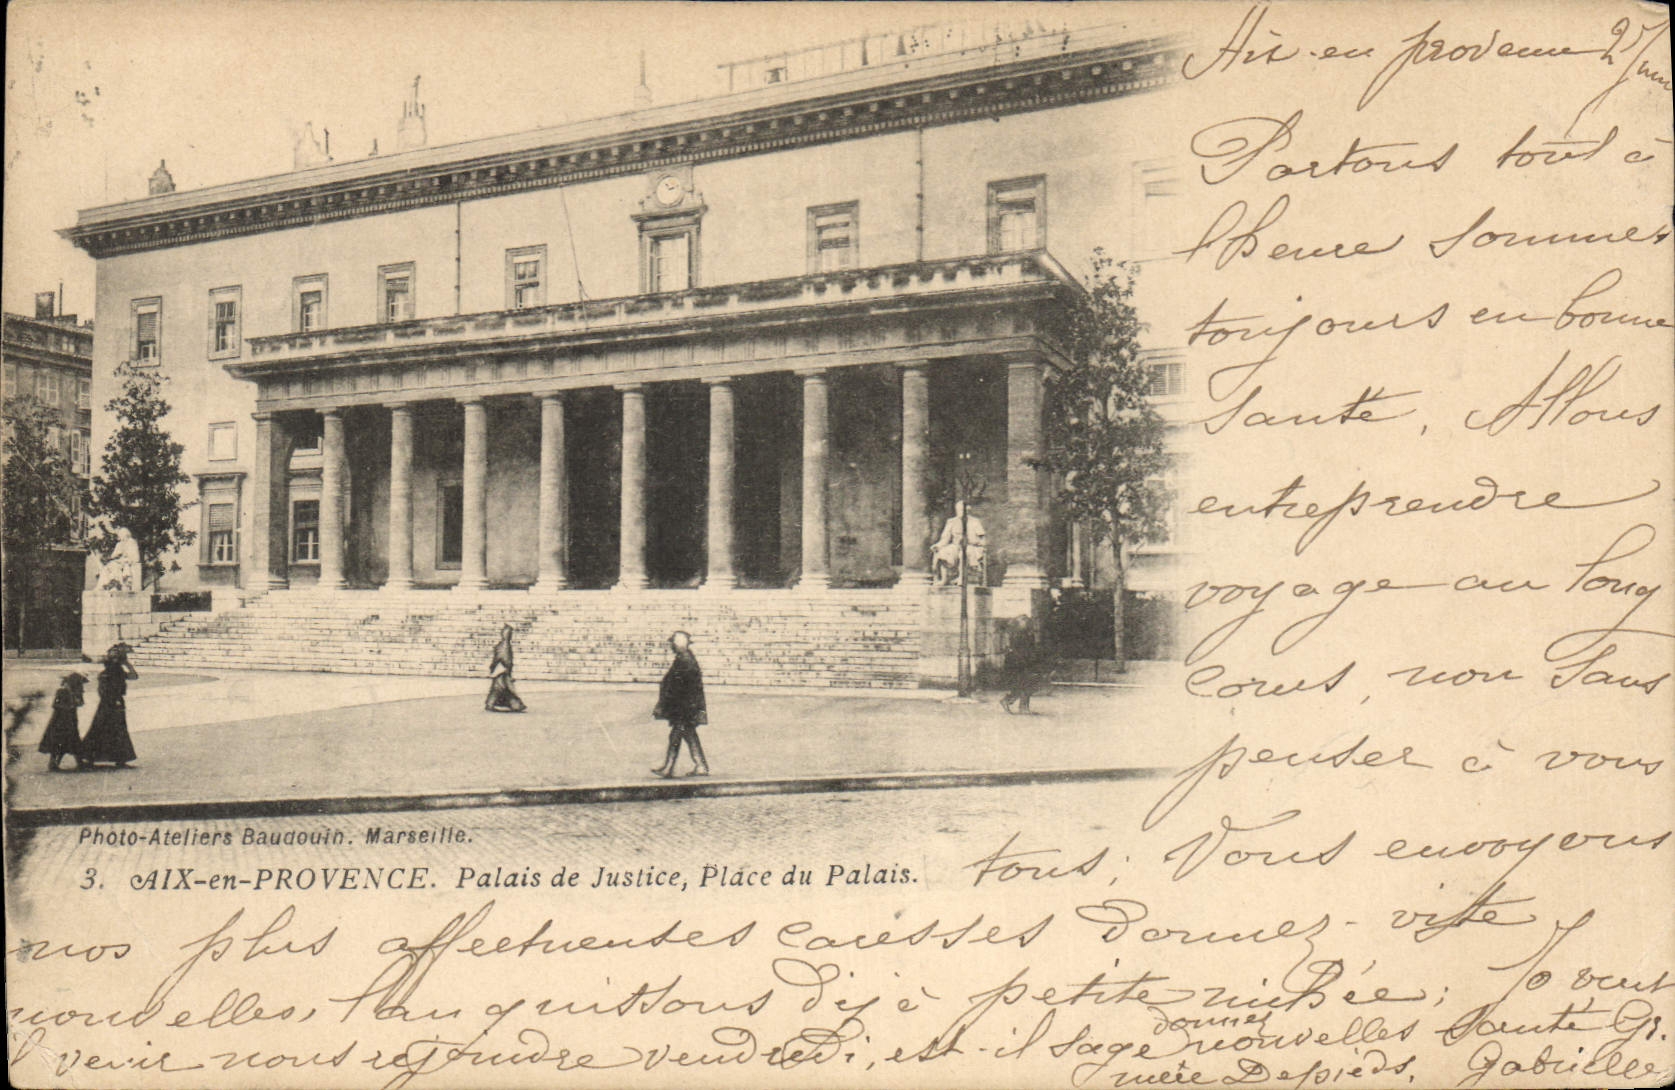 Aix-en provence 25/
Partons tout à
l'heure sommes
toujours en bonne
santé, Allons
entreprendre
voyage au long
cours, non sans
penser à vous
tous; Vous envoyons
nos plus affectueuses caresses Donnez-vite
nouvelles, languissons déjà petite nichée; Jo veut
venir nous rejoindre vendredi, est-il sage donnez nouvelles santé Gr.
mère Depieds. Gabrielle
Photo-Ateliers Baudouin. Marseille.
3. AIX-en-PROVENCE. Palais de Justice, Place du Palais.